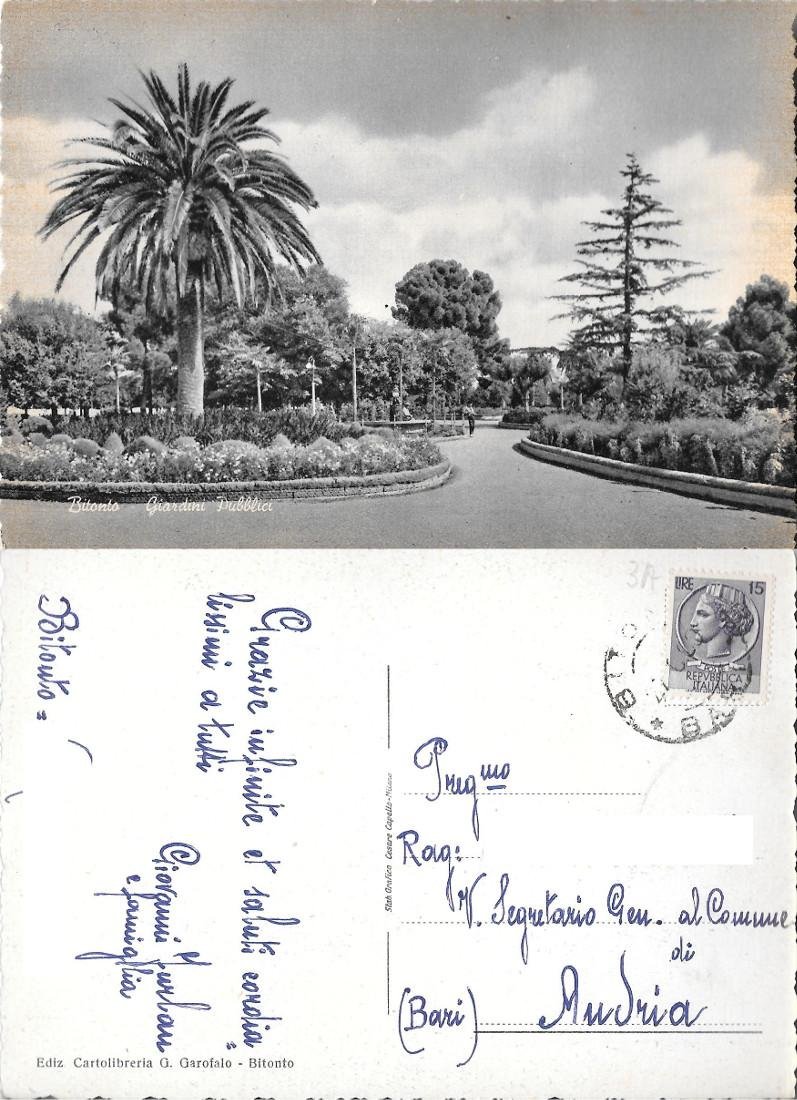 Bitonto Giardini Pubblici
3A
LIRE 15
REPVBBLICA
ITALIANA
BITO
BA
Bitonto =
Grazie infinite et saluti cordia=
lissimi a tutti
Giovanni Furlan
e famiglia
Stab Grafico Cesare Capello - Milano
Preg.mo
Rag:
V. Segretario Gen. al Comune
di
Andria
(Bari)
Ediz Cartolibreria G. Garofalo - Bitonto